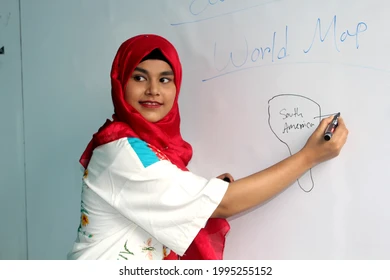 World Map
South
Amemen
shutterstock.com · 1995255152